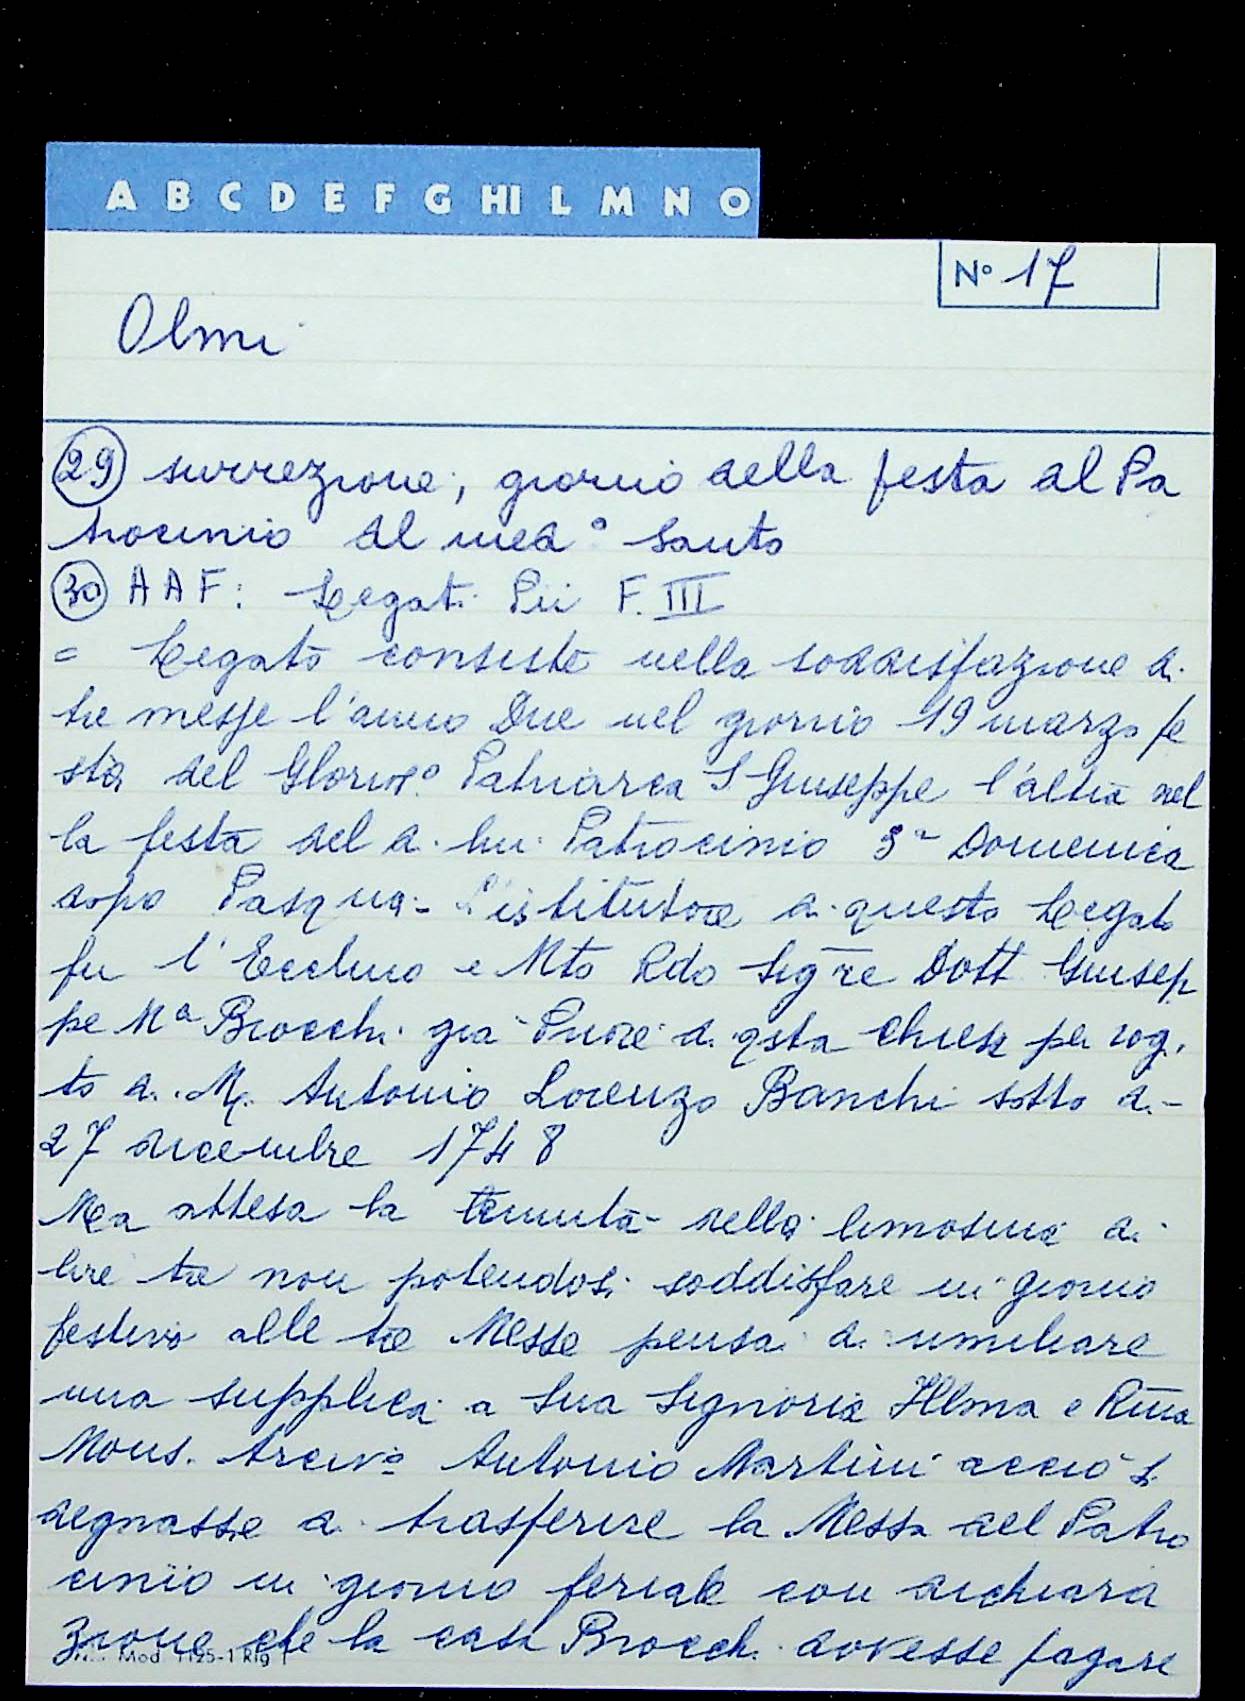 A B C D E F G HI L M N O
N° 17
Olmi
29 surrezione; giorno della festa al Pa
trocinio del med° Santo
30 AAF: Legati Pii F. III
= Legato consiste nella soddisfazione di
tre messe l'anno Due nel giorno 19 marzo fe
sta del Glorios° Patriarca S Giuseppe l'altra nel
la festa del di lui Patrocinio 3a Domenica
dopo Pasqua - L'istitutore di questo Legato
fu l'Ecclmo e Mto Rdo Sigre Dott Giusep
pe Ma Brocchi già Priore di qsta Chiesa per rog.
to di M. Antonio Lorenzo Banchi sotto di -
27 dicembre 1748
Ma attesa la tenuità della limosina di
lire tre non potendosi soddisfare in giorno
festivo alle tre Messe pensai di umiliare
una supplica a Sua Signoria Illma e Rma
Mons. Arcivo Antonio Martini acciò si
degnasse di trasferire la Messa del Patro
cinio in giorno feriale con dichiara
zione che la casa Brocchi dovesse pagare
Mod. 1125-1 Rig 1